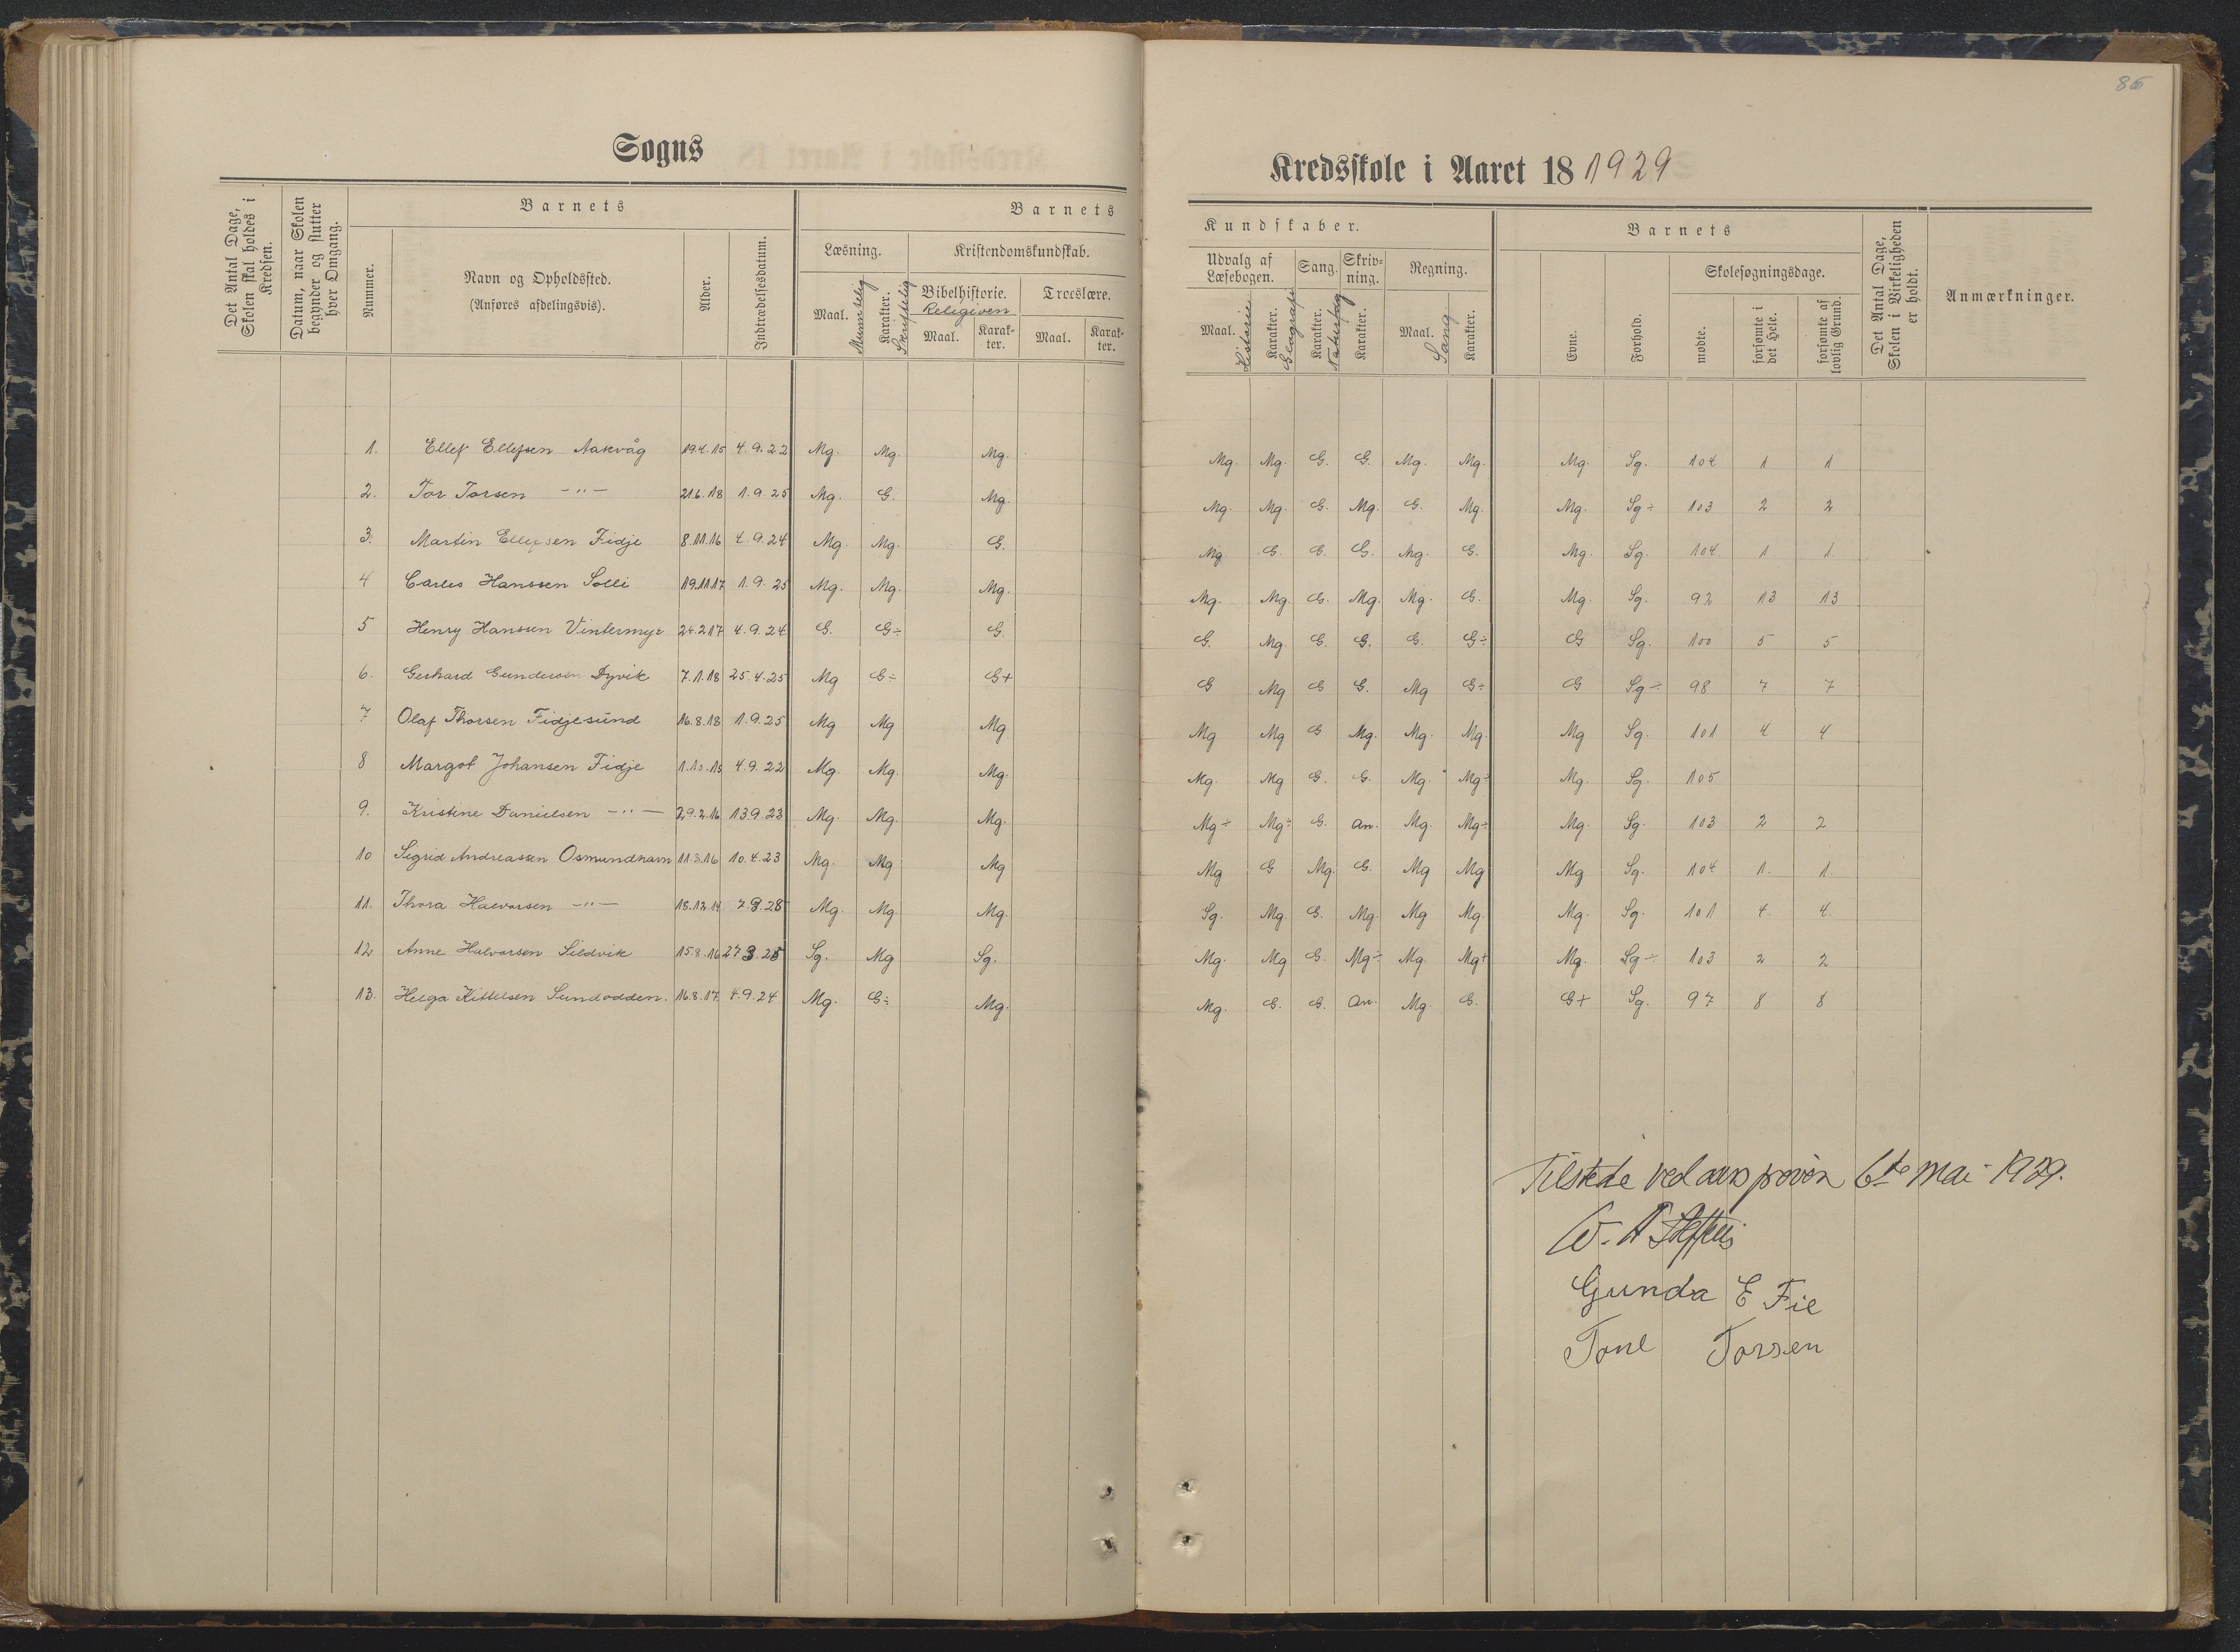 86
Sogns
Kredsskole i Aaret 18 1929
Det Antal Dage, Skolen skal holdes i Kredsen.
Datum, naar Skolen begynder og slutter hver Omgang.
Barnets
Nummer.
Navn og Opholdssted.
(Anføres afdelingsvis).
Alder.
Indtrædelsesdatum.
Barnets
Læsning.
Maal. Mundtlig
Karakter. Skriftlig
Kristendomskundskab.
Bibelhistorie. Troeslære.
Religiøen
Maal. Karakter. Maal. Karakter.
Kundskaber.
Udvalg af Læsebogen. Sang. Skrivning. Regning.
Maal. Historie Karakter. Geografi Karakter. Naturfag Karakter. Maal. Sang Karakter.
Barnets
Evne. Forhold.
Skolesøgningsdage.
mødte. forsømte i det Hele. forsømte af lovlig Grund.
Det Antal Dage, Skolen i Virkeligheden er holdt.
Anmærkninger.
1. Ellef Ellefsen Aakvåg 19.4.15 4.9.22 Mg. Mg. Mg. Mg. Mg. G. G. Mg. Mg. Mg. Sg. 104 1 1
2. Tor Torsen -"- 21.6.18 1.9.25 Mg. G. Mg. Mg. Mg. G. Mg. G. Mg. Mg. Sg÷ 103 2 2
3. Martin Ellefsen Fidje 8.11.16 4.9.24 Mg. Mg. G. Mg. G. G. G. Mg. G. Mg. Sg. 104 1 1
4 Carles Hanssen Solli 19.11.17 1.9.25 Mg. Mg. Mg. Mg. Mg. G. Mg. Mg. G. Mg. Sg. 92 13 13
5 Henry Hanssen Vintermyr 24.2.17 4.9.24 G. G÷ G. G. Mg. G. G. G. G÷ G Sg. 100 5 5
6. Gerhard Gundersen Dyvik 7.1.18 25.4.25 Mg G÷ G+ G Mg G G. Mg G÷ G Sg÷ 98 7 7
7 Olaf Thorsen Fidjesund 16.8.18 1.9.25 Mg Mg Mg Mg Mg G Mg. Mg. Mg. Mg Sg. 101 4 4
8 Margot Johansen Fidje 1.10.15 4.9.22 Mg. Mg. Mg. Mg. Mg G. G. Mg. Mg÷ Mg. Sg. 105
9. Kristine Danielsen -"- 29.2.16 13.9.23 Mg. Mg. Mg. Mg÷ Mg÷ G. an. Mg. Mg÷ Mg. Sg. 103 2 2
10 Sigrid Andreassen Osmundhavn 11.3.16 10.4.23 Mg. Mg Mg Mg G Mg. G. Mg Mg Mg Sg. 104 1. 1
11. Thora Halvorsen -"- 18.12.14 Mg. Mg. Mg. Sg. Mg. G. Mg. Mg Mg. Mg. Sg. 101 4. 4.
12 Anne Halvorsen Sildvik 15.8.16 Sg. Mg Sg. Mg. Mg G. Mg÷ Mg. Mg+ Mg. Sg÷ 103 2 2
13. Helga Kittelsen Sundodden. 16.8.17 4.9.24 Mg. G÷ Mg. Mg. G. G. an. Mg. G. G+ Sg. 97 8 8
Tilstede ved prøven 6te mai 1929.
Gunda E Fie
Tone Torsen